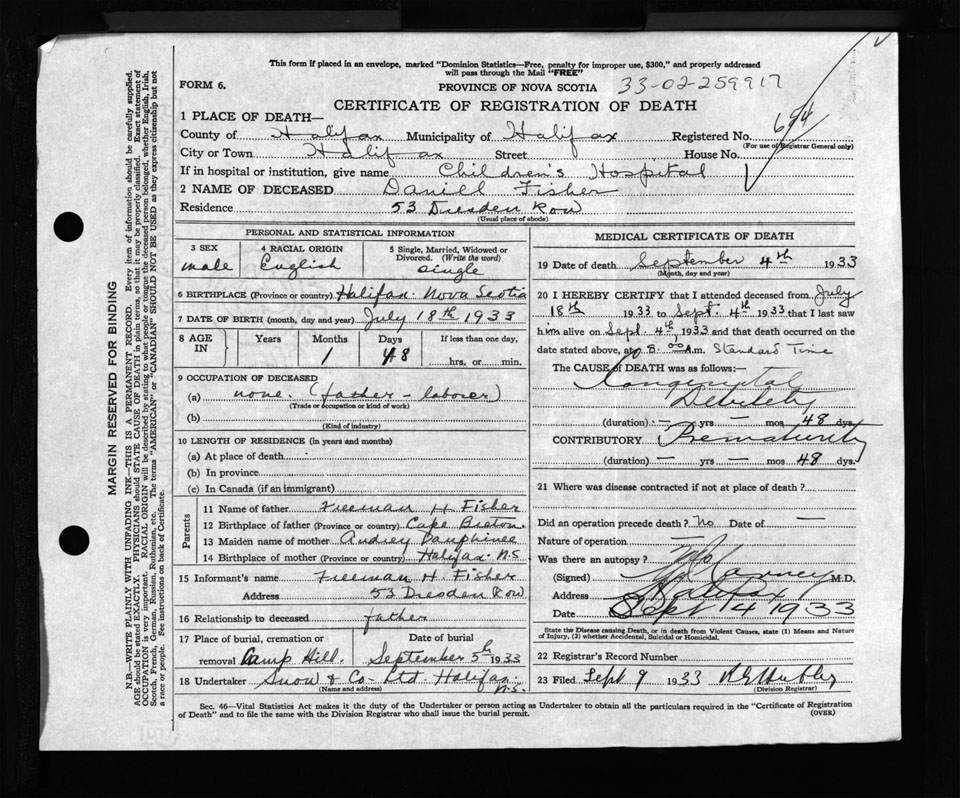 This form if placed in an envelope, marked "Dominion Statistics—Free, penalty for improper use, $300," and properly addressed
will pass through the Mail "FREE"
FORM 6.
PROVINCE OF NOVA SCOTIA
33-02-259917
CERTIFICATE OF REGISTRATION OF DEATH
1 PLACE OF DEATH—
694
County of Halifax Municipality of Halifax Registered No.
(For use of Registrar General only)
City or Town Halifax Street House No.
If in hospital or institution, give name Children's Hospital
2 NAME OF DECEASED Daniel Fisher
Residence 53 Dresden Row
(Usual place of abode)
PERSONAL AND STATISTICAL INFORMATION
3 SEX
male
4 RACIAL ORIGIN
English
5 Single, Married, Widowed or Divorced. (Write the word)
single
6 BIRTHPLACE (Province or country) Halifax. Nova Scotia
7 DATE OF BIRTH (month, day and year) July 18th 1933
8 AGE IN
Years Months Days If less than one day,
1 48 hrs. or min.
9 OCCUPATION OF DECEASED
(a) none. (father - laborer)
(Trade or occupation or kind of work)
(b)
(Kind of industry)
10 LENGTH OF RESIDENCE (in years and months)
(a) At place of death
(b) In province
(c) In Canada (if an immigrant)
Parents
11 Name of father Freeman H. Fisher
12 Birthplace of father (Province or country) Cape Breton
13 Maiden name of mother Audrey Dauphinee
14 Birthplace of mother (Province or country) Halifax. N.S.
15 Informant's name Freeman H. Fisher
Address 53 Dresden Row
16 Relationship to deceased father
17 Place of burial, cremation or removal Camp Hill.
Date of burial
September 5th 1933
18 Undertaker Snow & Co. Ltd. Halifax. N.S.
(Name and address)
MEDICAL CERTIFICATE OF DEATH
19 Date of death September 4th 1933
(Month, day and year)
20 I HEREBY CERTIFY that I attended deceased from July
18th 1933 to Sept. 4th 1933 that I last saw
him alive on Sept. 4th, 1933 and that death occurred on the
date stated above, at 8.00 A.m. Standard Time
The CAUSE of DEATH was as follows:—
Congenital
Debility
(duration) — yrs — mos 48 dys.
CONTRIBUTORY Prematurity
(duration) — yrs — mos 48 dys.
21 Where was disease contracted if not at place of death?
Did an operation precede death? No Date of —
Nature of operation —
Was there an autopsy? No
(Signed) M.D.
Address Halifax
Date Sept 4 1933
State the Disease causing Death, or in death from Violent Causes, state (1) Means and Nature
of Injury, (2) whether Accidental, Suicidal or Homicidal.
22 Registrar's Record Number
23 Filed Sept 9 1933
(Division Registrar)
Sec. 46—Vital Statistics Act makes it the duty of the Undertaker or person acting as Undertaker to obtain all the particulars required in the "Certificate of Registration
of Death" and to file the same with the Division Registrar who shall issue the burial permit.
(OVER)
MARGIN RESERVED FOR BINDING
N.B.—WRITE PLAINLY WITH UNFADING INK—THIS IS A PERMANENT RECORD. Every item of information should be carefully supplied.
AGE should be stated EXACTLY. PHYSICIANS should STATE CAUSE OF DEATH in plain terms, so that it may be properly classified. Exact statement of
OCCUPATION is very important. RACIAL ORIGIN will be described by stating to what people or tongue the deceased person belonged, whether English, Irish,
Scotch, French, German, Russian, Ruthenian, etc. The terms "AMERICAN" or "CANADIAN" SHOULD NOT BE USED as they express citizenship but not
a race or people. See instructions on back of Certificate.